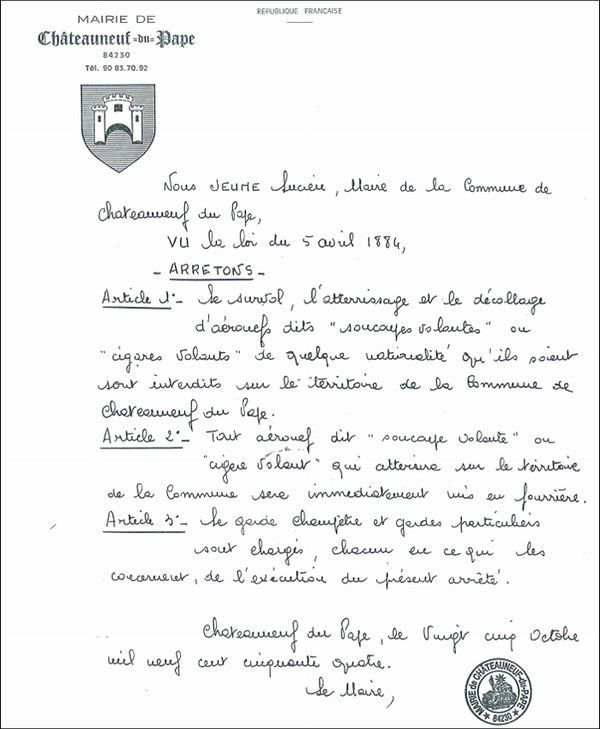 RÉPUBLIQUE FRANÇAISE
MAIRIE DE
Châteauneuf-du-Pape
84230
Tél. 90 83.70.92
Nous JEUNE Lucien, Maire de la Commune de
Chateauneuf du Pape,
VU la loi du 5 avril 1884,
- ARRETONS -
Article 1°- Le survol, l'atterrissage et le décollage
d'aéronefs dits "soucoupes volantes" ou
"cigares volants" de quelque nationalité qu'ils soient
sont interdits sur le territoire de la Commune de
Chateauneuf du Pape.
Article 2°- Tout aéronef dit "soucoupe volante" ou
"cigare volant" qui atterrira sur le territoire
de la Commune sera immédiatement mis en fourrière.
Article 3°- Le garde champêtre et gardes particuliers
sont chargés, chacun en ce qui les
concernent, de l'exécution du présent arrêté.
Chateauneuf du Pape, le Vingt cinq Octobre
mil neuf cent cinquante quatre.
Le Maire,
MAIRIE de CHATEAUNEUF-du-PAPE
84230